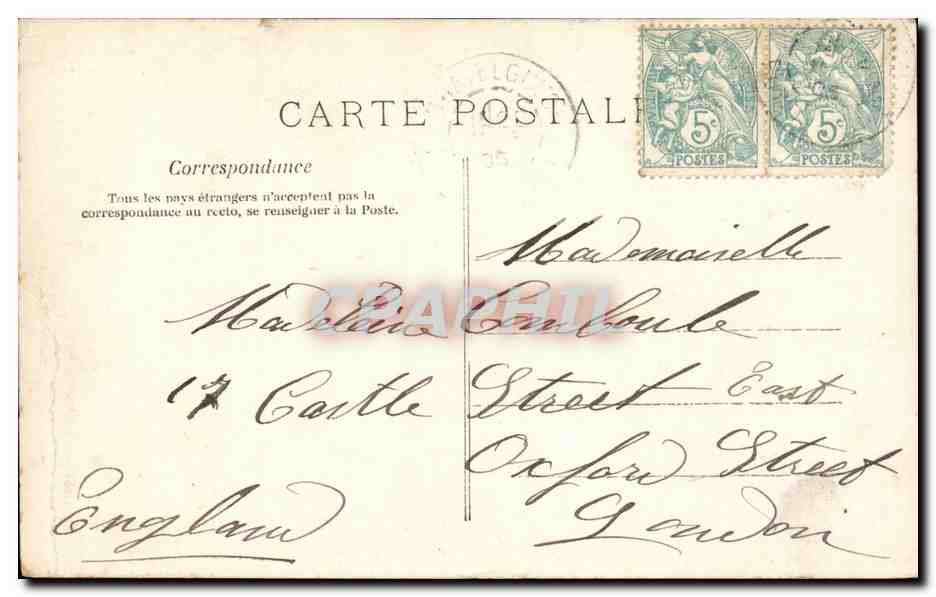 CARTE POSTALE
5c
POSTES
5c
POSTES
Correspondance
Tous les pays étrangers n'acceptent pas la
correspondance au recto, se renseigner à la Poste.
Mademoiselle
Madeleine
17 Castle Street East
Oxford Street
London
England
CPAPHIL